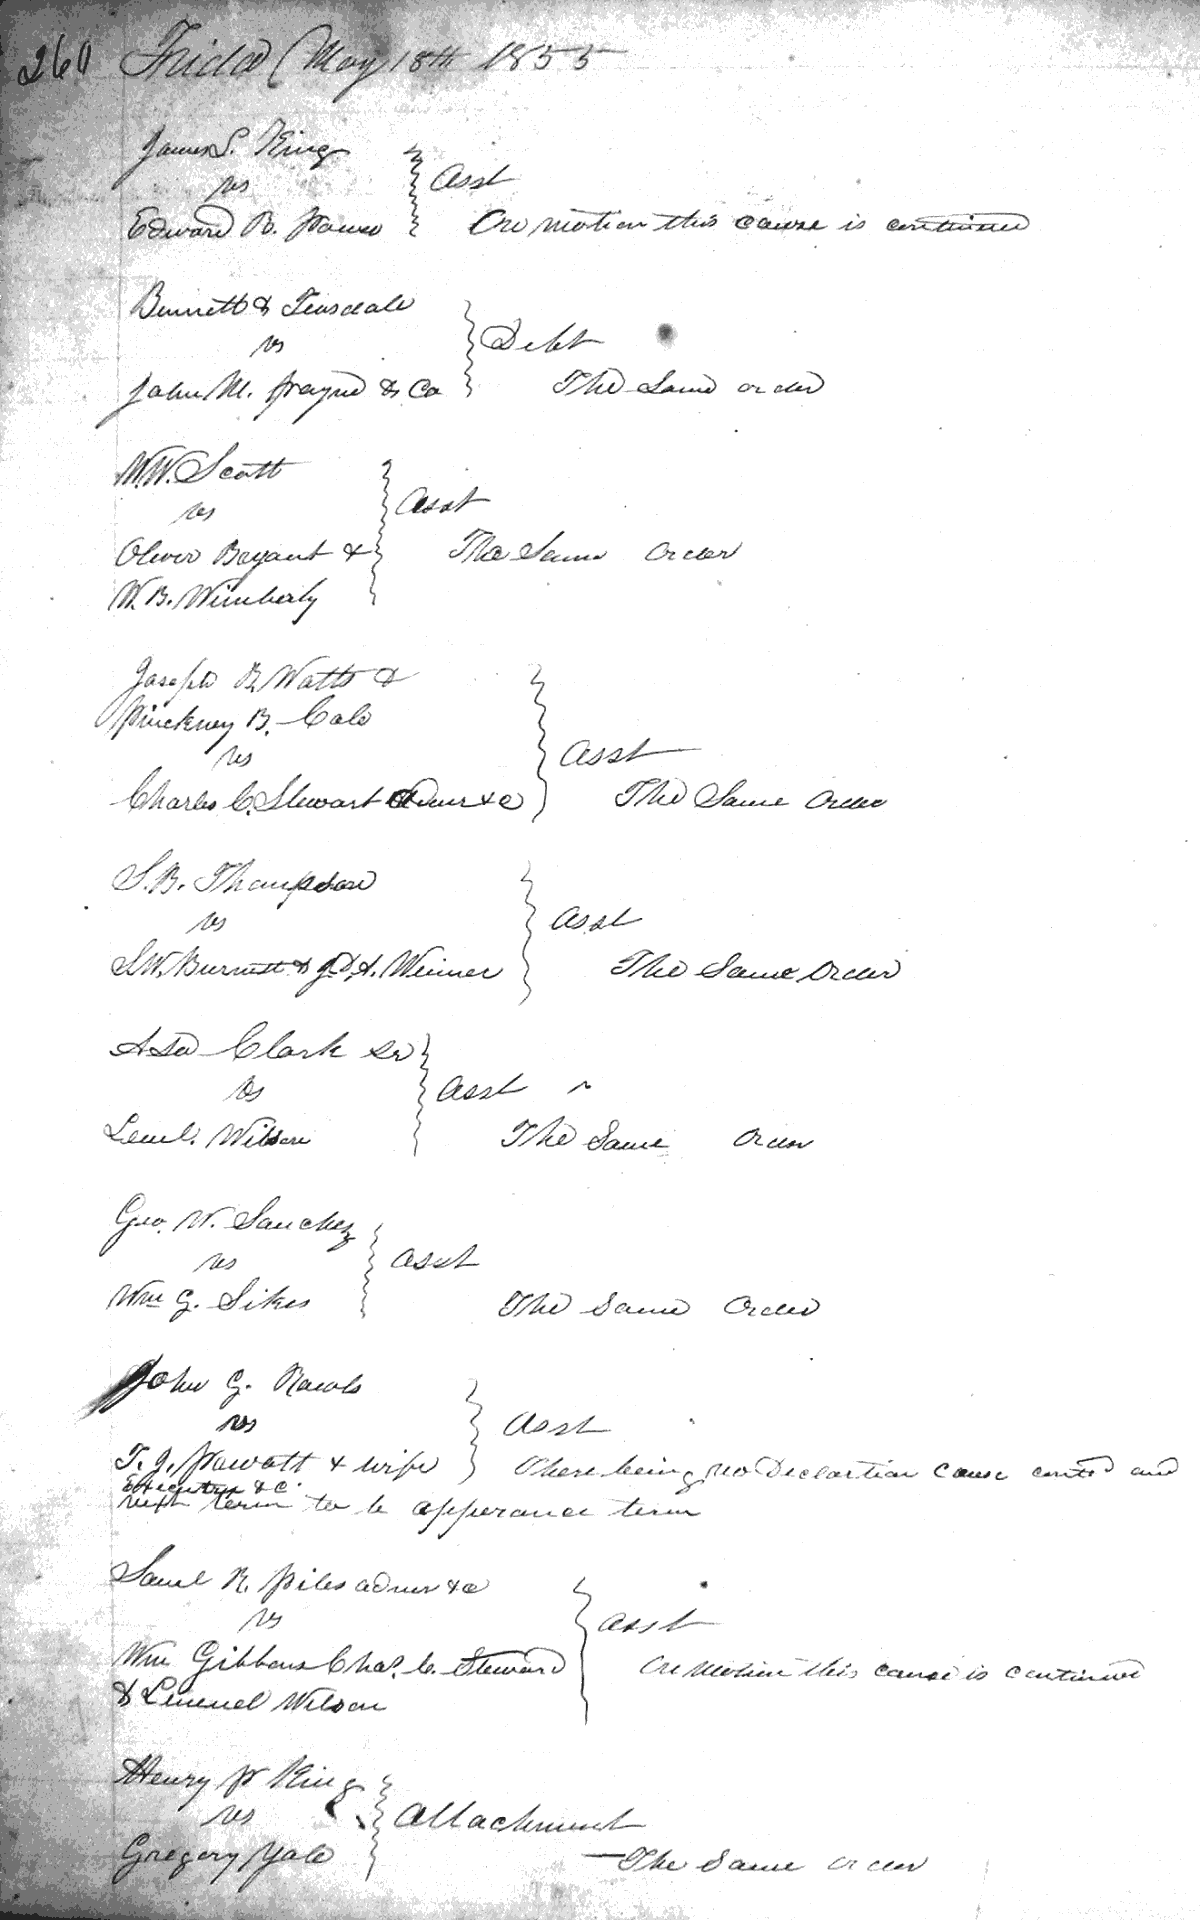 260 Friday May 18th 1855
James S. King
vs
Asst
Edward B.
On motion this cause is continued
Burnett & Teasdale
vs
Debt
John M. Frayne & Co
The Same order
W.W. Scott
vs
Asst
Oliver Bryant &
The Same order
W. B. Wimberly
Joseph B. Watts &
Pinckney B. Cale
vs
Asst
Charles C. Stewart Admr &c
The Same Order
S. B. Thompson
vs
Asst
S.W. Burnett & J. A. Weimer
The Same Order
Asa Clark Sr
vs
Asst
Leml. Wilson
The Same Order
Geo. W. Sanchez
vs
Asst
Wm G. Sikes
The Same Order
John G. Rawls
vs
Asst
T. J. Prevatt & wife
There being no Declartion cause contd and
Executrix &C.
next term to be apperance term
Saml R. Piles admr &c
vs
Asst
Wm Gibbons Chas. C. Steward
On Motion this cause is continued
& Lemuel Wilson
Henry P King
vs
Attachment
Gregory Yale
The Same order